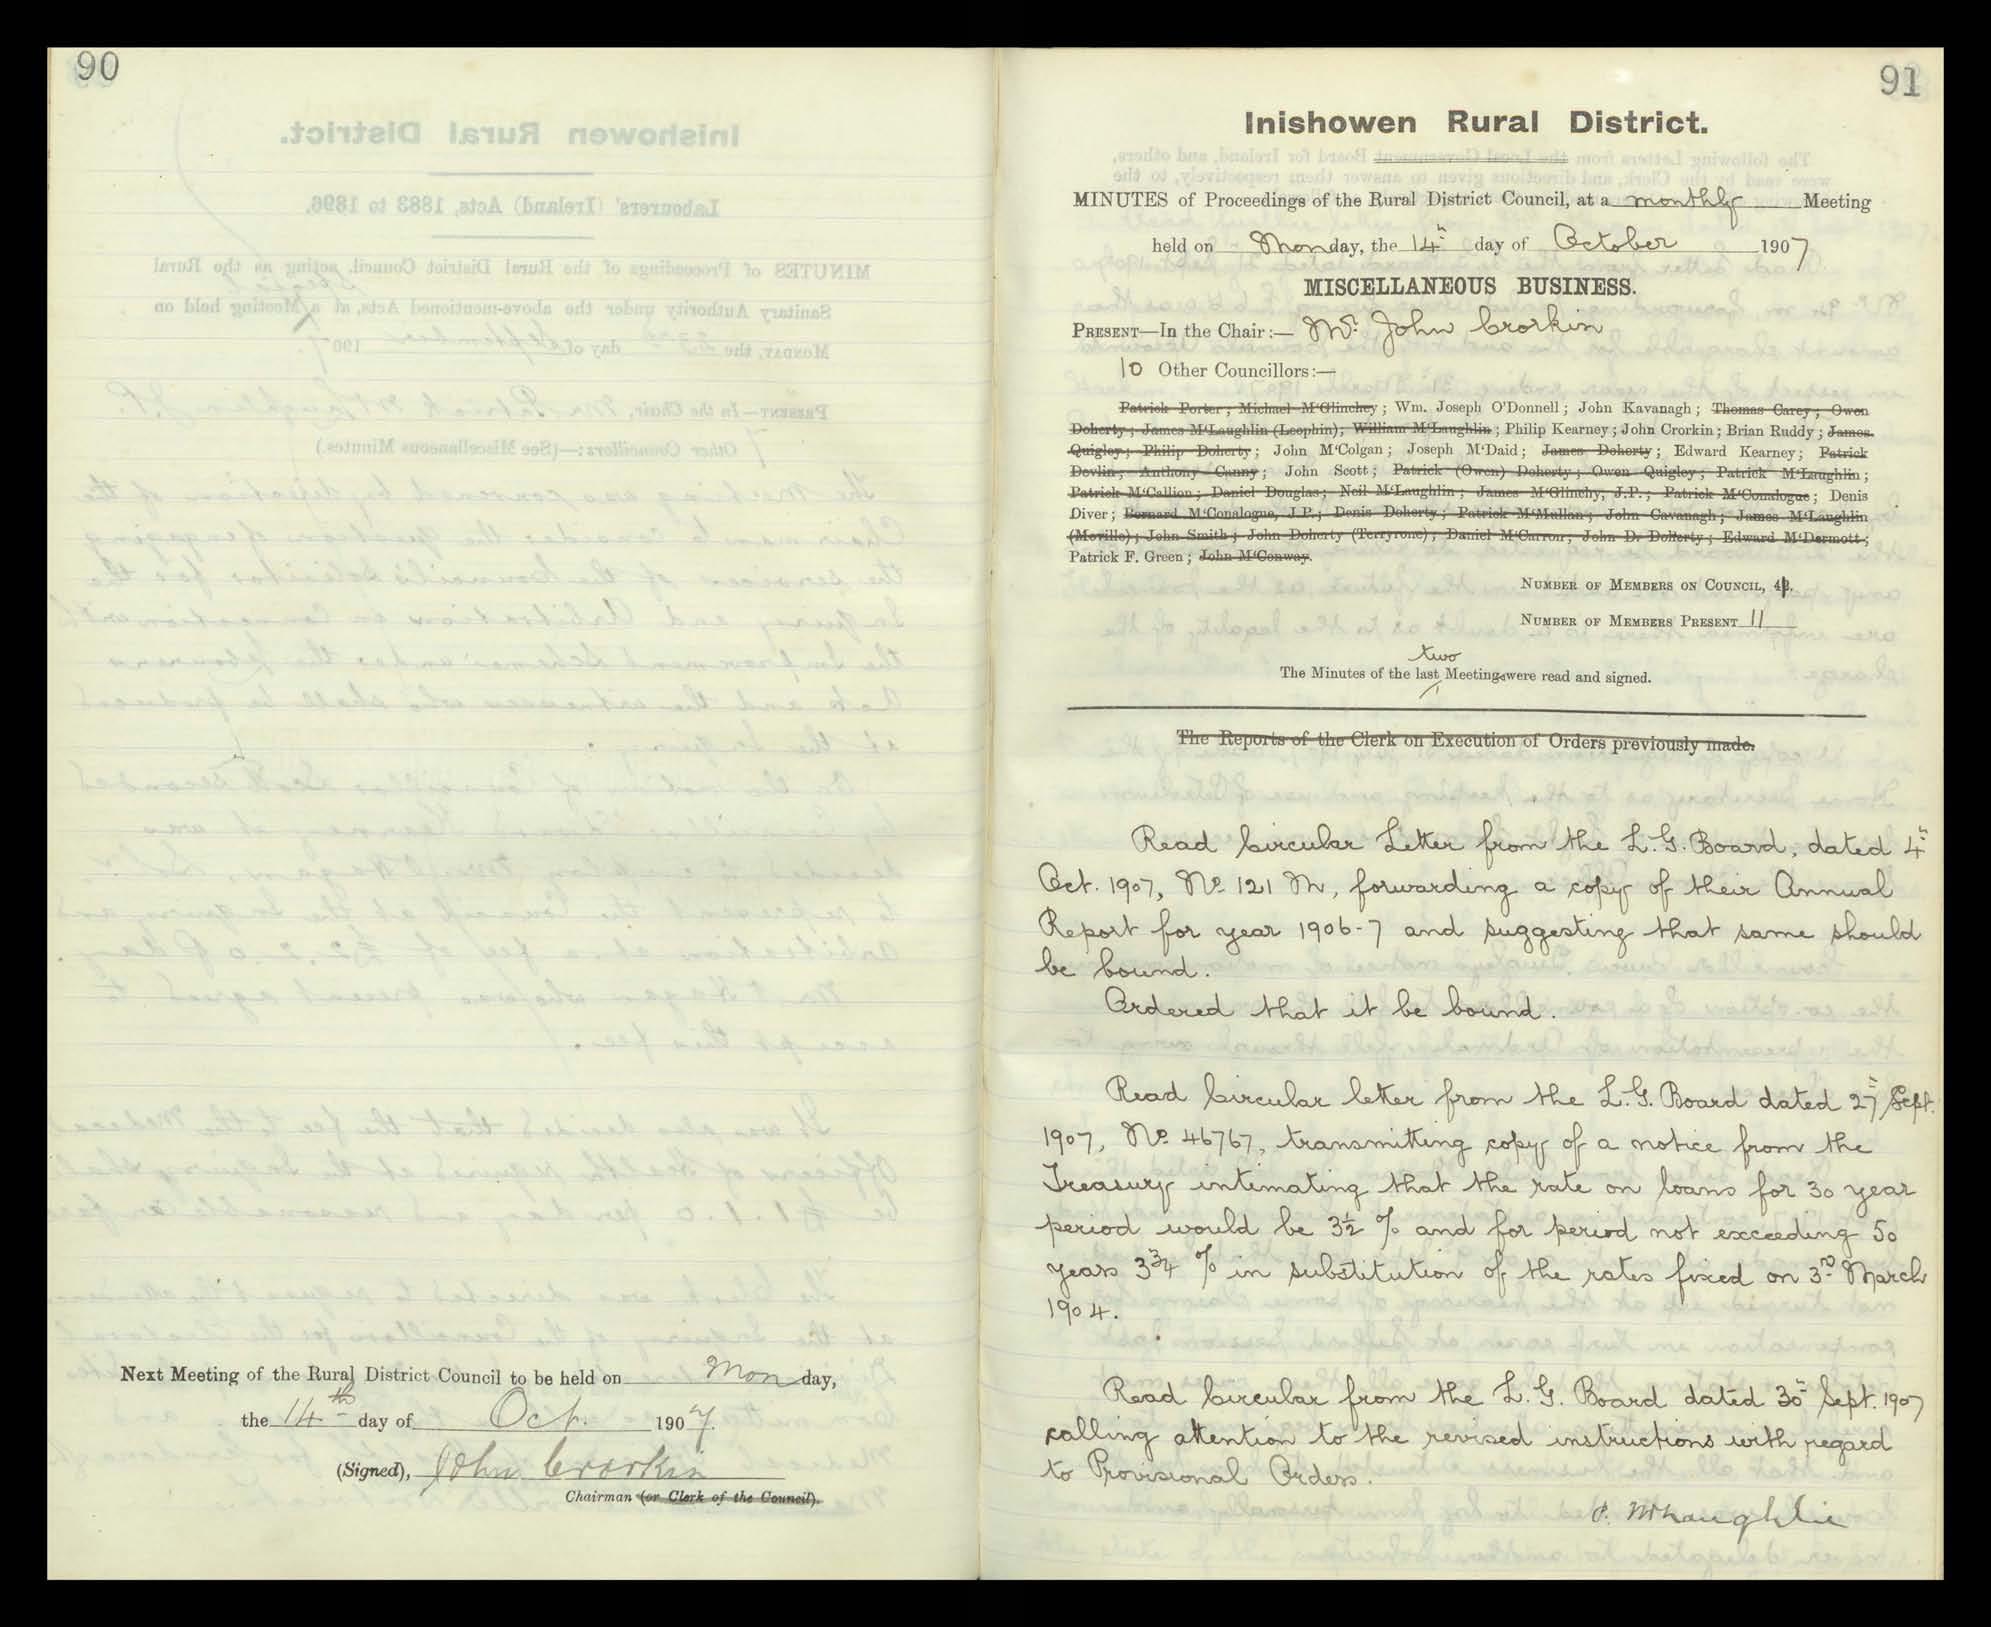 90
Next Meeting of the Rural District Council to be held on Monday,
the 14th day of Oct. 1907.
(Signed), John Crorkin
Chairman (or Clerk of the Council).
91
Inishowen Rural District.
MINUTES of Proceedings of the Rural District Council, at a monthly Meeting
held on Monday, the 14th day of October 1907
MISCELLANEOUS BUSINESS.
PRESENT—In the Chair:— Mr. John Crorkin
10 Other Councillors:—
Patrick Porter; Michael M'Glinchey; Wm. Joseph O'Donnell; John Kavanagh; Thomas Carey; Owen
Doherty; James M'Laughlin (Leophin); William M'Laughlin; Philip Kearney; John Crorkin; Brian Ruddy; James
Quigley; Philip Doherty; John M'Colgan; Joseph M'Daid; James Doherty; Edward Kearney; Patrick
Devlin; Anthony Canny; John Scott; Patrick (Owen) Doherty; Owen Quigley; Patrick M'Laughlin;
Patrick M'Callion; Daniel Douglas; Neil M'Laughlin; James M'Glinchy, J.P.; Patrick M'Conalogue; Denis
Diver; Bernard M'Conalogue, J.P.; Denis Doherty; Patrick M'Mullan; John Cavanagh; James M'Laughlin
(Moville); John Smith; John Doherty (Terryrone); Daniel M'Carron; John D. Doherty; Edward M'Dermott;
Patrick F. Green; John M'Conway.
NUMBER OF MEMBERS ON COUNCIL, 42.
NUMBER OF MEMBERS PRESENT 11
two
The Minutes of the last Meetings were read and signed.
The Reports of the Clerk on Execution of Orders previously made.
Read Circular Letter from the L.G. Board, dated 4th
Oct. 1907, No. 121 M, forwarding a copy of their Annual
Report for year 1906-7 and suggesting that same should
be bound.
Ordered that it be bound.
Read Circular letter from the L.G. Board dated 27th Sept.
1907, No. 46767, transmitting copy of a notice from the
Treasury intimating that the rate on loans for 30 year
period would be 3½ % and for period not exceeding 50
years 3¾ % in substitution of the rates fixed on 3rd March
1904.
Read Circular from the L.G. Board dated 30th Sept. 1907
calling attention to the revised instructions with regard
to Provisional Orders.
P. McLaughlin